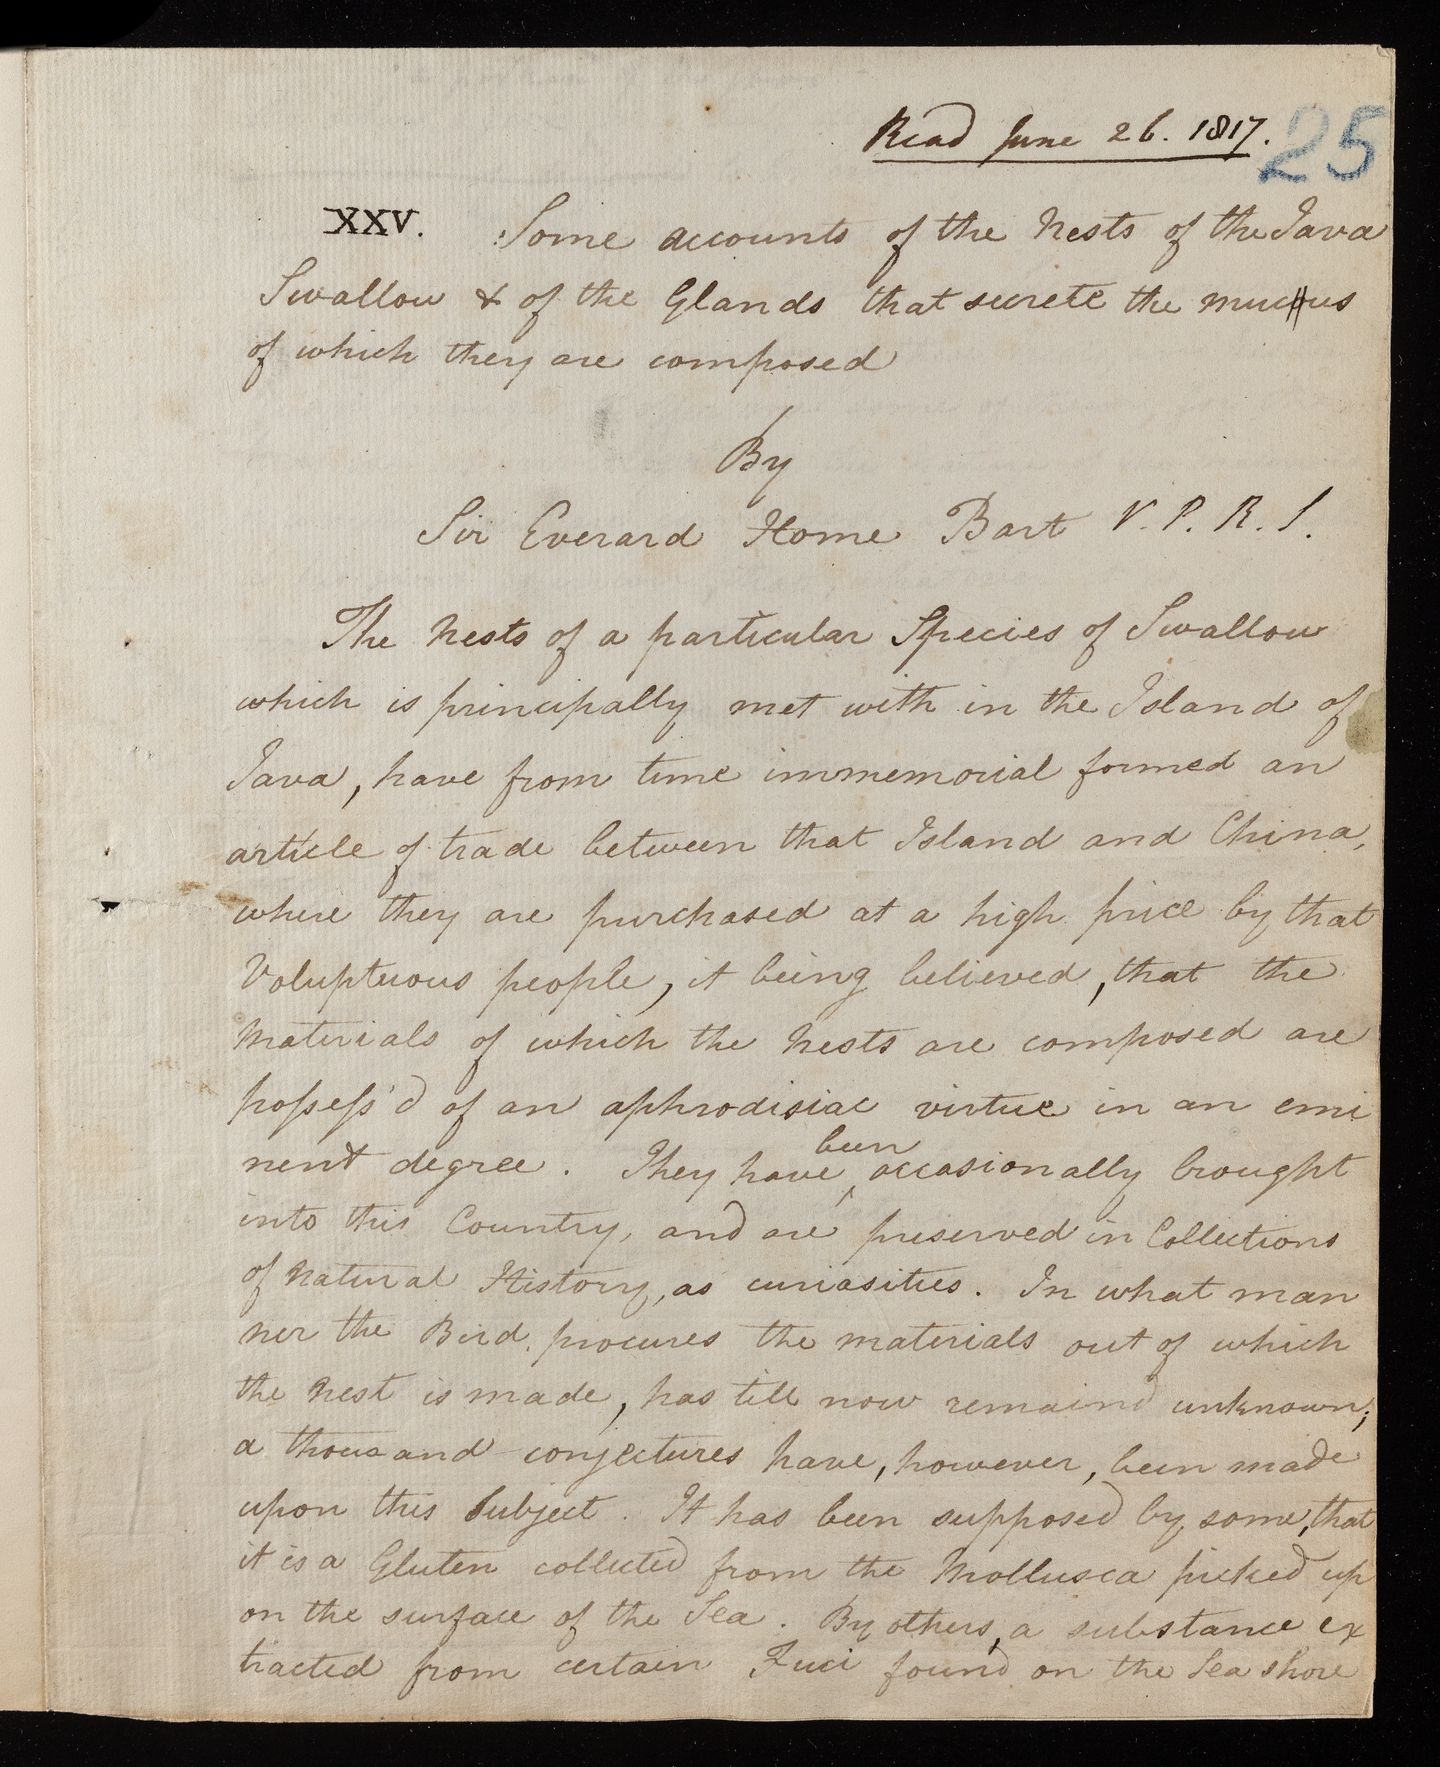 Read June 26. 1817.
25
XXV. Some accounts of the Nests of the Java
Swallow & of the Glands that secrete the mucus
of which they are composed
By
Sir Everard Home Bart V. P. R. S.
The Nests of a particular Species of Swallow
which is principally met with in the Island of
Java, have from time immemorial formed an
article of trade between that Island and China,
where they are purchased at a high price by that
Voluptuous people, it being believed, that the
Materials of which the Nests are composed are
possess'd of an aphrodisiac virtue in an emi
nent degree. They have been occasionally brought
into this Country, and are preserved in Collections
of Natural History, as curiasities. In what man
ner the Bird procures the materials out of which
the Nest is made, has till now remaind unknown;
a thousand conjectures have, however, been made
upon this Subject. It has been supposed by some, that
it is a Gluten collected from the Mollusca picked up
on the surface of the Sea. By others, a substance ex
tracted from certain Fuci found on the Sea shore